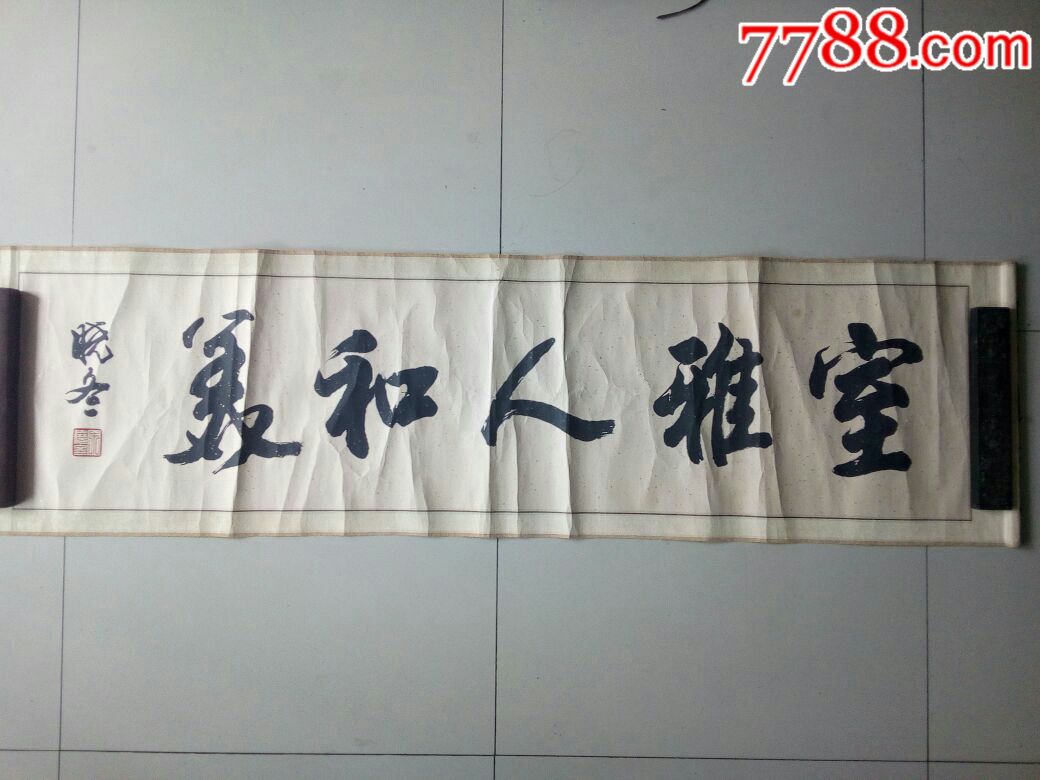 7788.com
室雅人和美
晓冬